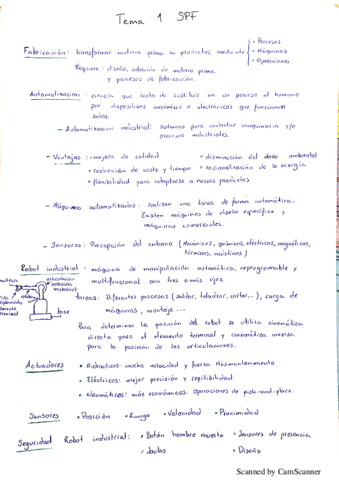 Tema 1 SPF
Fabricación: transformar materia prima en productos mediante
• Procesos
• Máquinas
• Operaciones
Requiere: diseño, selección de materia prima
y procesos de fabricación.
Automatización: ciencia que trata de sustituir en un proceso al humano
por dispositivos mecánicos o electrónicos que funcionan
solos.
- Automatización industrial: Sistemas para controlar maquinaria y/o
procesos industriales.
- Ventajas: • mejora de calidad • disminución del daño ambiental
• reducción de coste y tiempo • racionalización de la energía
• flexibilidad para adaptarse a nuevos productos
- Máquinas automatizadas: realizan una tarea de forma automática.
Existen máquinas de diseño específico y
máquinas comerciales.
- Sensores: Percepción del entorno (Mecánicos, químicos, eléctricos, magnéticos,
térmicos, acústicos)
Robot industrial: • máquina de manipulación automática, reprogramable y
multifuncional con tres o más ejes.
muñeca
articulación
(rotación
traslación)
elemento
terminal
base
tareas: Diferentes procesos (soldar, taladrar, cortar...), carga de
máquinas, montaje ...
Para determinar la posición del robot se utiliza cinemática
directa para el elemento terminal y cinemática inversa
para la posición de las articulaciones.
Actuadores • Hidráulicos: mucha velocidad y fuerza. Mas mantenimiento
• Eléctricos: mejor precisión y repitibilidad
• Neumáticos: más económicos. Operaciones de pick-and-place.
Sensores • Posición • Rango • Velocidad • Proximidad
Seguridad Robot industrial: • Botón hombre muerto • Sensores de presencia
• Jaulas • Diseño
Scanned by CamScanner